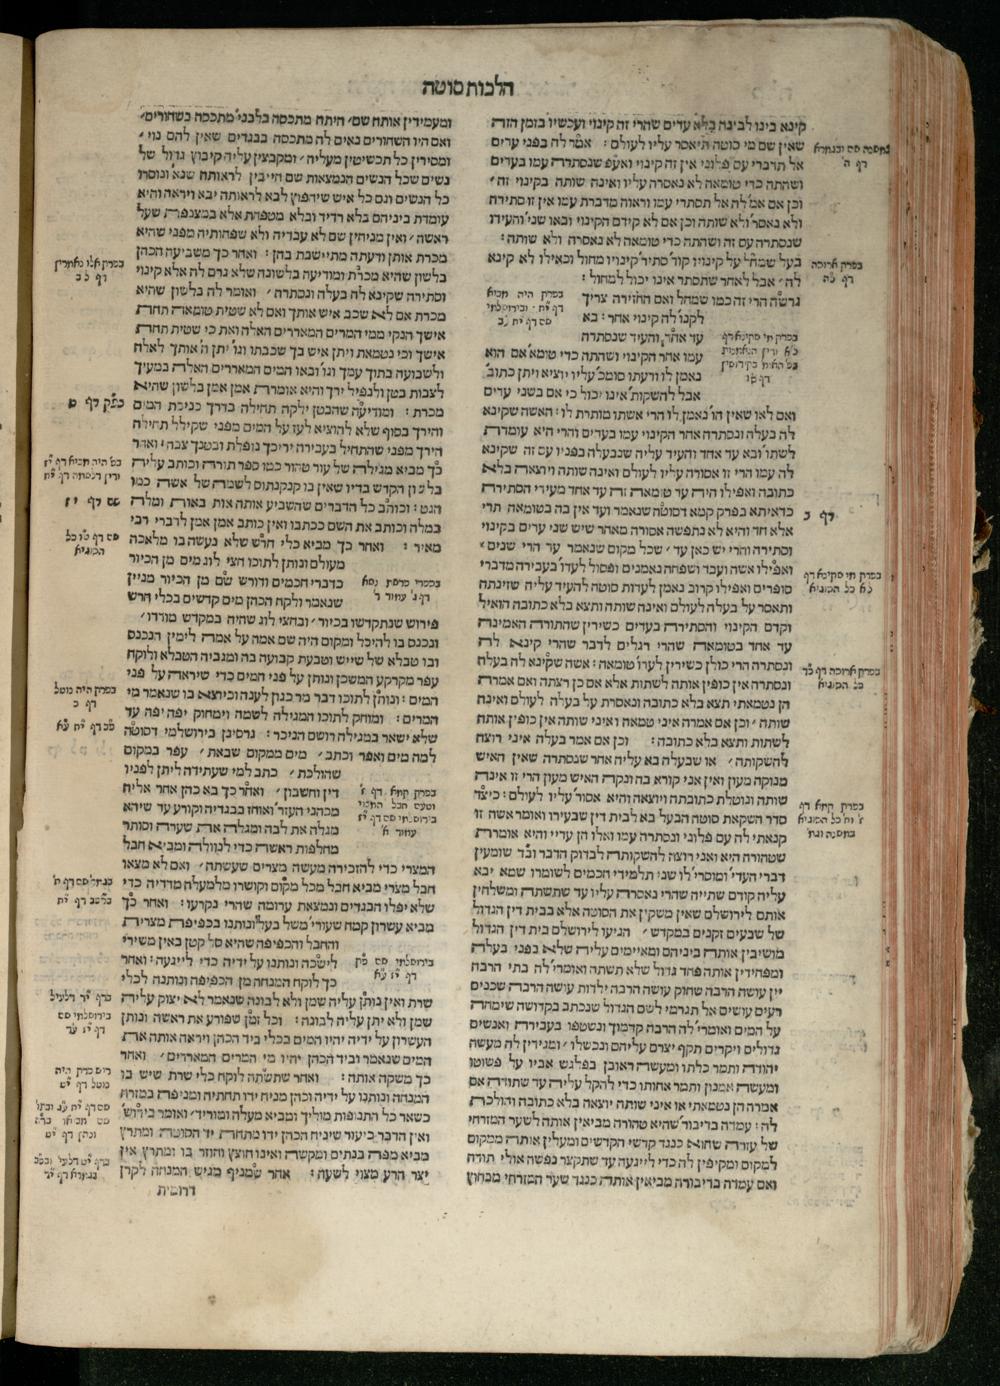 הלכות סוטה
קינא בינו לבינה בלא עדים שהרי זה קינוי ועכשיו בזמן הזה
שאין שם מי סוטה תיאסר עליו לעולם : אמר לה בפני עדים
אל תדברי עם פלוני אין זה קינוי ואעפ שנסתרה עמו בעדים
ושהתה כדי טומאה לא נאסרה עליו ואינה שותה בקינוי זה׳
וכן אם אמ׳ לה אל תסתרי עמו וראוה מדברת עמו אין זו סתירה
ולא נאסר׳ ולא שותה וכן אם לא קידם הקינוי ובאו שני׳ והעידו
שנסתרה עם זה ושהתה כדי טומאה לא נאסרה ולא שותה :
בעל שמחל על קינויו קוד׳ סתיר׳ קינויו מחול וכאילו לא קינא
לה׳ אבל לאחר שתסתר אינו יכול למחול :
גרשה הרי זה כמו שמחל ואם החזירה צריך
לקנו׳ לה קינוי אחר : בא
עד אחד והעיד שנסתרה
עמו אחר הקינוי ושהתה כדי טומא׳ אם הוא
נאמן לו ודעתו סומכ׳ עליו יוציא ויתן כתוב׳
אבל להשקות׳ אינו יכול כי אם בשני עדים
ואם לאו שאין הו׳ נאמן לו הרי אשתו מותרת לו : האשה שקינא
לה בעלה ונסתרה אחר הקינוי עמו בעדים והרי היא עומדת
לשתו׳ ובא עד אחד והעיד עליה שנבעלה בפניו עם זה שקינא
לה עמו הרי זו אסורה עליו לעולם ואינה שותה ויוצאה בלא
כתובה ואפילו היה עד טומאה זה עד אחד מעידי הסתירה
כדאיתא בפרק קמא דסוטה שנאמר ועד אין בה בטומאה תרי
אלא חד והיא לא נתפשה אסורה מאחר שיש שני עדים בקינוי
וסתירה והרי יש כאן עד׳ שכל מקום שנאמר עד הרי שנים׳
ואפילו אשה ועבד ושפחה נאמנים ופסול לעדו׳ בעבירה מדברי
סופרים ואפילו קרוב נאמן לעדות סוטה להעיד עליה שזינתה
ותאסר על בעלה לעולם ואינה שותה ותצא בלא כתובה הואיל
וקדם הקינוי והסתירה בעדים כשירין שהתורה האמינה
עד אחד בטומאה שהרי רגלים לדבר שהרי קינא לה
ונסתרה הרי כולן כשירין לעדו׳ טומאה : אשה שקינא לה בעלה
ונסתרה אין כופין אותה לשתות אלא אם כן רצתה ואם אמרה
הן נטמאתי תצא בלא כתובה ונאסרת על בעלה לעולם ואינה
שותה׳ וכן אם אמרה איני טמאה ואיני שותה אין כופין אותה
לשתות ותצא בלא כתובה : וכן אם אמר בעלה איני רוצה
להשקותה׳ או שבעלה בא עליה אחר שנסתרה שאין האיש
מנוקה מעון ואין אני קורא בה ונקה האיש מעון הרי זו אינה
שותה ונוטלת כתובתה ויוצאה והיא אסור׳ עליו לעולם : כיצד
סדר השקאת סוטה הבעל בא לבית דין שבעירו ואומר אשה זו
קנאתי לה עם פלוני ונסתרה עמו ואלו הן עדיי והיא אומרת
שטהורה היא ואני רוצה להשקותה לבדוק הדבר ובד שומעין
דברי העדי׳ ומוסרי׳ לו שני תלמידי חכמים לשומרו שמא יבא
עליה קודם שתייה שהרי נאסרה עליו עד שתשתה ומשלחין
אותם לירושלם שאין משקין את הסוטה אלא בבית דין הגדול
של שבעים זקנים במקדש׳ הגיעו לירושלם בית דין הגדול
מושיבין אותה ביניהם ומאיימים עליה שלא בפני בעלה
ומפחידין אותה פחד גדול שלא תשתה ואומרי׳ לה בתי הרבה
יין עושה הרבה שחוק עושה הרבה ילדות עושה הרבה שכנים
רעים עושים אל תגרמי לשם הגדול שנכתב בקדושה שימחה
על המים ואומרי׳ לה הרבה קדמוך ונשטפו בעבירה ואנשים
גדולים ויקרים תקף יצרם עליהם ונכשלו׳ ומגידין לה מעשה
יהודה ותמר כלתו ומעשה ראובן בפלגש אביו על פשוטו
ומעשה אמנון ותמר אחותו כדי להקל עליה עד שתודה אם
אמרה הן נטמאתי או איני שותה יוצאה בלא כתובה והולכת
לה : עמדה בדיבור׳ שהיא טהורה מביאין אותה לשער המזרחי
של עזרה שהוא כנגד קדשי הקדשים ומעלין אותה ממקום
למקום ומקיפין לה כדי לייגעה עד שתקצר נפשה אולי תודה
ואם עמדה בדיבורה מביאין אותה כנגד שער המזרחי מבחוץ
ומעמידין אותה שם׳ היתה מתכסה בלבני׳ מתכסה בשחורים׳
ואם היו השחורים נאים לה מתכסה בבגדים שאין להם נוי׳
ומסירין כל תכשיטין מעליה׳ ומקבצין עליה קיבוץ גדול של
נשים שכל הנשים הנמצאות שם חייבין לראותה שנא ונוסרו
כל הנשים וגם כל איש שירפוץ לבא לראותה יבא ויראה והיא
עומדת ביניהם בלא רדיד ובלא מטפחת אלא במצנפת שעל
ראשה׳ ואין מניחין שם לא עבדיה ולא שפחותיה מפני שהיא
מכרת אותן ודעתה מתיישבת בהן : ואחר כך משביעה הכהן
בלשון שהיא מכרת ומודיעה בלשונה שלא גרם לה אלא קינוי
וסתירה שקינא לה בעלה ונסתרה׳ ואומר לה בלשון שהיא
מכרת אם לא שכב איש אותך ואם לא שטית טומאה תחת
אישך הנקי ממי המרים המאררים האלה ואת כי שטית תחת
אישך וכי נטמאת ויתן איש בך שכבתו וגו׳ יתן ה׳ אותך לאלה
ולשבועה בתוך עמך וגו׳ ובאו המים המאררים האלה במעיך
לצבות בטן ולנפיל ירך והיא אומרת אמן אמן בלשון שהיא
מכרת : ומודיעה שהבטן ילקה תחילה בדרך כניסת המים
והירך בסוף שלא להוציא לעז על המים מפני שקילל תחילה
הירך מפני שהתחיל בעבירה יריכך נופלת ובטנך צבה : ואחר
כך מביא מגילה של עור טהור כמו ספר תורה וכותב עליה
בלשון הקדש בדיו שאין בו קנקנתום לשמה של אשה כמו
הגט : וכותב כל הדברים שהשביע אותה אות באות ומלה
במלה וכותב את השם ככתבו ואין כותב אמן אמן לדברי רבי
מאיר : ואחר כך מביא כלי חרש שלא נעשה בו מלאכה
מעולם ונותן לתוכו חצי לוג מים מן הכיור
כדברי חכמים ודורש שם מן הכיור מניין
שנאמר ולקח הכהן מים קדשים בכלי חרש
פירוש שנתקדשו בכיור׳ ובחצי לוג שהיה במקדש מודדו׳
ונכנס בו להיכל ומקום היה שם אמה על אמה לימין הנכנס
ובו טבלא של שייש וטבעת קבועה בה ומגביה הטבלא ולוקח
עפר מקרקע המשכן ונותן על פני המים כדי שיראה על פני
המים : ונותן לתוכו דבר מר כגון לענה וכיוצא בו שנאמר מי
המרים : ומוחק לתוכו המגילה לשמה וימחוק יפה יפה עד
שלא ישאר במגילה רושם הניכר : גרסינן בירושלמי דסוטה
למה מים ואפר וכתב׳ מים ממקום שבאת׳ עפר במקום
שהולכת׳ כתב למי שעתידה ליתן לפניו
דין וחשבון׳ ואחר כך בא כהן אחר אליה
מכהני העזר׳ ואוחז בבגדיה וקורע עד שיהא
מגלה את לבה ומגלה את שערה וסותר
מחלפות ראשה כדי לנוולה ומביא חבל
המצרי כדי להזכירה מעשה מצרים שעשתה׳ ואם לא מצאו
חבל מצרי מביא חבל מכל מקום וקושרו מלמעלה מדדיה כדי
שלא יפלו הבגדים ונמצאת ערומה שהרי נקרעו : ואחר כך
מביא עשרון קמח שעורי׳ משל בעל׳ ונותנו בכפיפה מצרית
והחבל והכפיפה שהיא סל קטן באין משירי
לישכה ונותנו על ידיה כדי לייגעה : ואחר
כך לוקח המנחה מן הכפיפה ונותנה לכלי
שרת ואין נותן עליה שמן ולא לבונה שנאמר לא יצוק עליה
שמן ולא יתן עליה לבונה : וכל זמן שפורע את ראשה ונותן
העשרון על ידיה יהיו המים בכלי ביד הכהן ויראה אותה את
המים שנאמר וביד הכהן יהיו מי המרים המאררים׳ ואחר
כך משקה אותה : ואחר שתשתה לוקח כלי שרת שיש בו
המנחה ונותנו על ידיה וכהן מניח ידו תחתיה ומניפה במזרח
כשאר כל התנופות מוליך ומביא מעלה ומוריד׳ ואומר בירוש׳
ואין הדבר כיעור שיניח הכהן ידו מתחת יד הסוטה ומתרץ
מביא מפה בנתים ומקשה ואינו חוצץ וחוזר בו ומתרץ אין
יצר הרע מצוי לשעה : אחר שמניף מגיש המנחה לקרן
דרומית
בפרק ארוסה
דף כה
בפרק היה מביא
דף יח ובירושלמי
דף כ
בפרק מי שקינא דף
לא כל הסוגיא
בפרק ארוסה דף כד
כל הסוגיא
בפרק קמא דף
ז׳ וח כל הסוגיא
בפרק אלו נאמרין
דף לב
שם דף יז
שם דף טו כל
הסוגיא
בספרי פרשת נשא
בפרק היה נוטל
דף כ
בפרק קמא דף ז׳
בירושלמי שם דף יז
עמוד א׳
בירושלמי שם